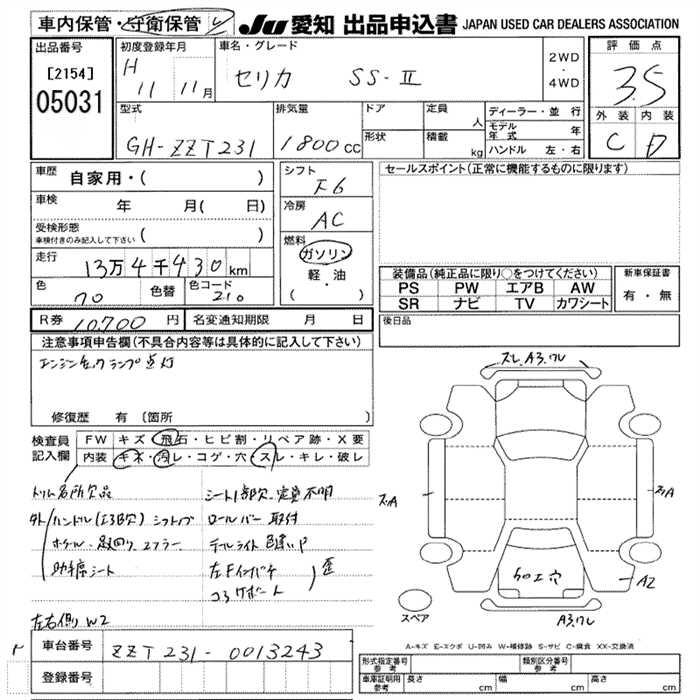 車内保管・守衛保管 レ JU 愛知 出品申込書 JAPAN USED CAR DEALERS ASSOCIATION
出品番号 初度登録年月 車名・グレード 2WD・4WD 評価点
[2154] H 11 11月 セリカ SS-Ⅱ 3.5
05031
外装 内装
C D
型式 排気量 ドア 定員 人 ディーラー・並行
GH-ZZT231 1800cc 形状 積載 kg モデル年式 年
ハンドル 左・右
車歴 自家用・( )
車検 年 月( 日)
受検形態 ( )
車検付きのみ記入して下さい
走行 13万4千430km
色 70 色替 色コード 210
シフト F6
冷房 AC
燃料 ガソリン
軽・油
( ・ )
セールスポイント(正常に機能するものに限ります)
装備品(純正品に限り○をつけてください) 新車保証書
PS PW エアB AW 有・無
SR ナビ TV カワシート
R券 10,700円 名変通知期限 月 日
後日品
注意事項申告欄(不具合内容等は具体的に記入して下さい)
エンジンチェックランプ点灯
修復歴 有 〔箇所 〕
検査員記入欄 FW キズ・飛石・ヒビ割・リペア跡・X要
内装 キズ・汚レ・コゲ・穴・スレ・キレ・破レ
トリム名所欠品 シート1部欠 定員不明
外 ハンドル(エアB欠) シフトノブ ロールバー取付
ホイール・足回り、マフラー テールライト 色違いP
助手席シート 左Fインパネ 歪
コアサポート
左右側り W2
スレ.A3.ワレ
スリA
スリA
加工穴
A2
スペア
A3.ワレ
A-キズ E-エクボ U-凹み W-補修跡 S-サビ C-腐食 XX-交換済
車台番号 ZZT231-0013243
登録番号
形式指定番号 参考 類別区分番号 参考
車庫証明用 参考 長さ cm 幅 cm 高さ cm